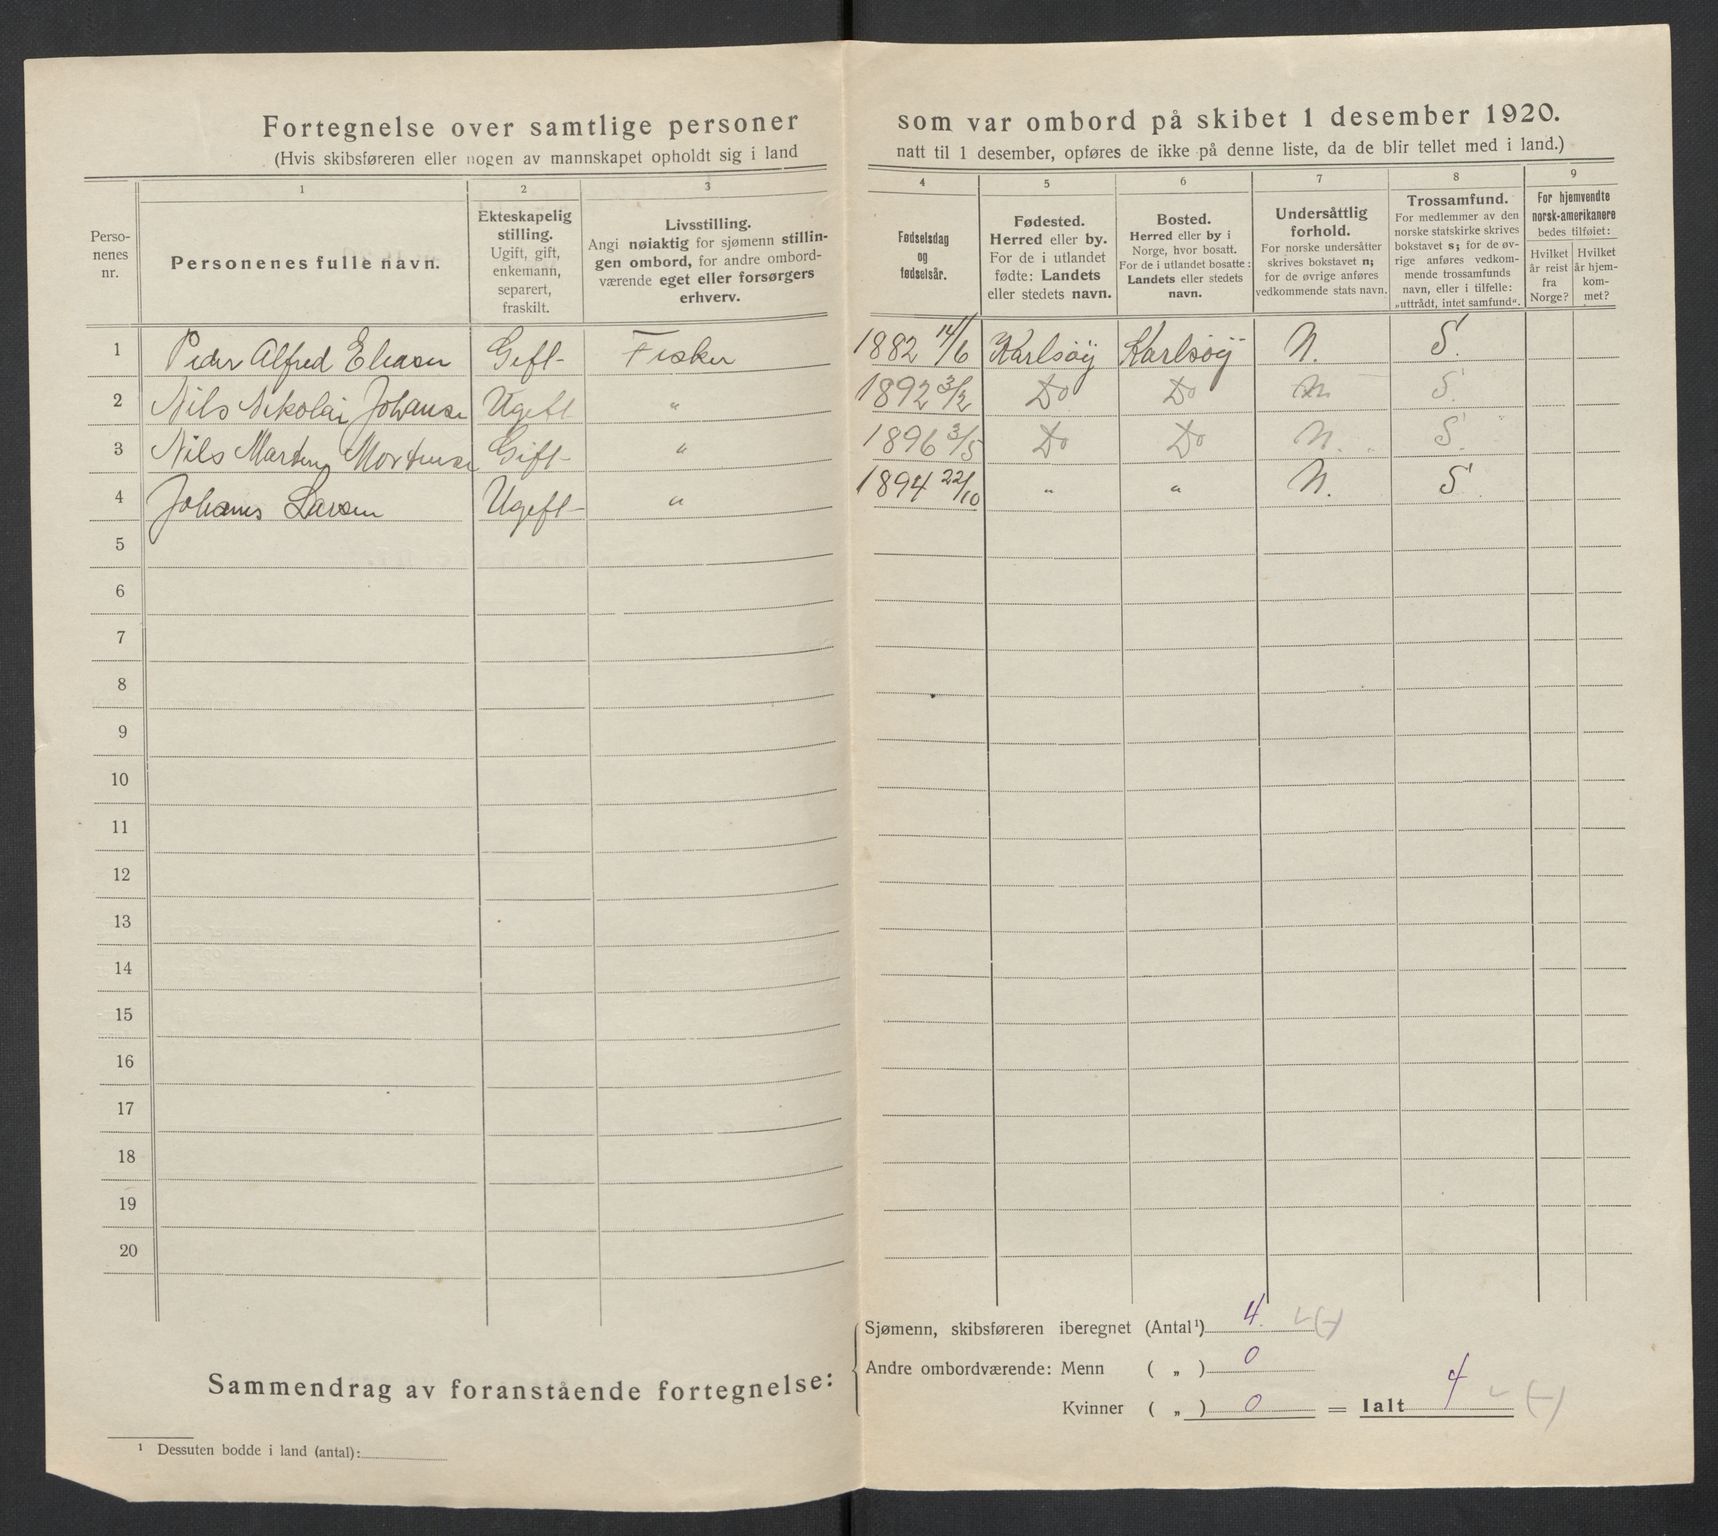 Fortegnelse over samtlige personer som var ombord på skibet 1 desember 1920.
(Hvis skibsføreren eller nogen av mannskapet opholdt sig i land natt til 1 desember, opføres de ikke på denne liste, da de blir tellet med i land.)
Perso-
nenes
nr.
1
Personenes fulle navn.
2
Ekteskapelig
stilling.
Ugift, gift,
enkemann,
separert,
fraskilt.
3
Livsstilling.
Angi nøiaktig for sjømenn stillin-
gen ombord, for andre ombord-
værende eget eller forsørgers
erhverv.
4
Fødselsdag
og
fødselsår.
5
Fødested.
Herred eller by.
For de i utlandet
fødte: Landets
eller stedets navn.
6
Bosted.
Herred eller by i
Norge, hvor bosatt.
For de i utlandet bosatte:
Landets eller stedets
navn.
7
Undersåttlig
forhold.
For norske undersåtter
skrives bokstavet n;
for de øvrige anføres
vedkommende stats navn.
8
Trossamfund.
For medlemmer av den
norske statskirke skrives
bokstavet s; for de øv-
rige anføres vedkom-
mende trossamfunds
navn, eller i tilfelle:
„uttrådt, intet samfund".
9
For hjemvendte
norsk-amerikanere
bedes tilføiet:
Hvilket
år reist
fra
Norge?
Hvilket
år hjem-
kom-
met?
1 Peder Alfred Eliasen Gift- Fisker 1882 14/6 Karlsöy Karlsöy N. S.
2 Nils Nikolai Johanse Ugift " 1892 3/2 Do Do N S.
3 Nils Marten Mortense Gift- " 1896 3/5 Do Do N. S.
4 Johans Larsen Ugift- " 1894 22/10 " " N. S
5
6
7
8
9
10
11
12
13
14
15
16
17
18
19
20
Sammendrag av foranstående fortegnelse:
Sjømenn, skibsføreren iberegnet (Antal¹) 4.
Andre ombordværende: Menn ( „ ) 0
Kvinner ( „ ) 0 = Ialt 4
¹ Dessuten bodde i land (antal):